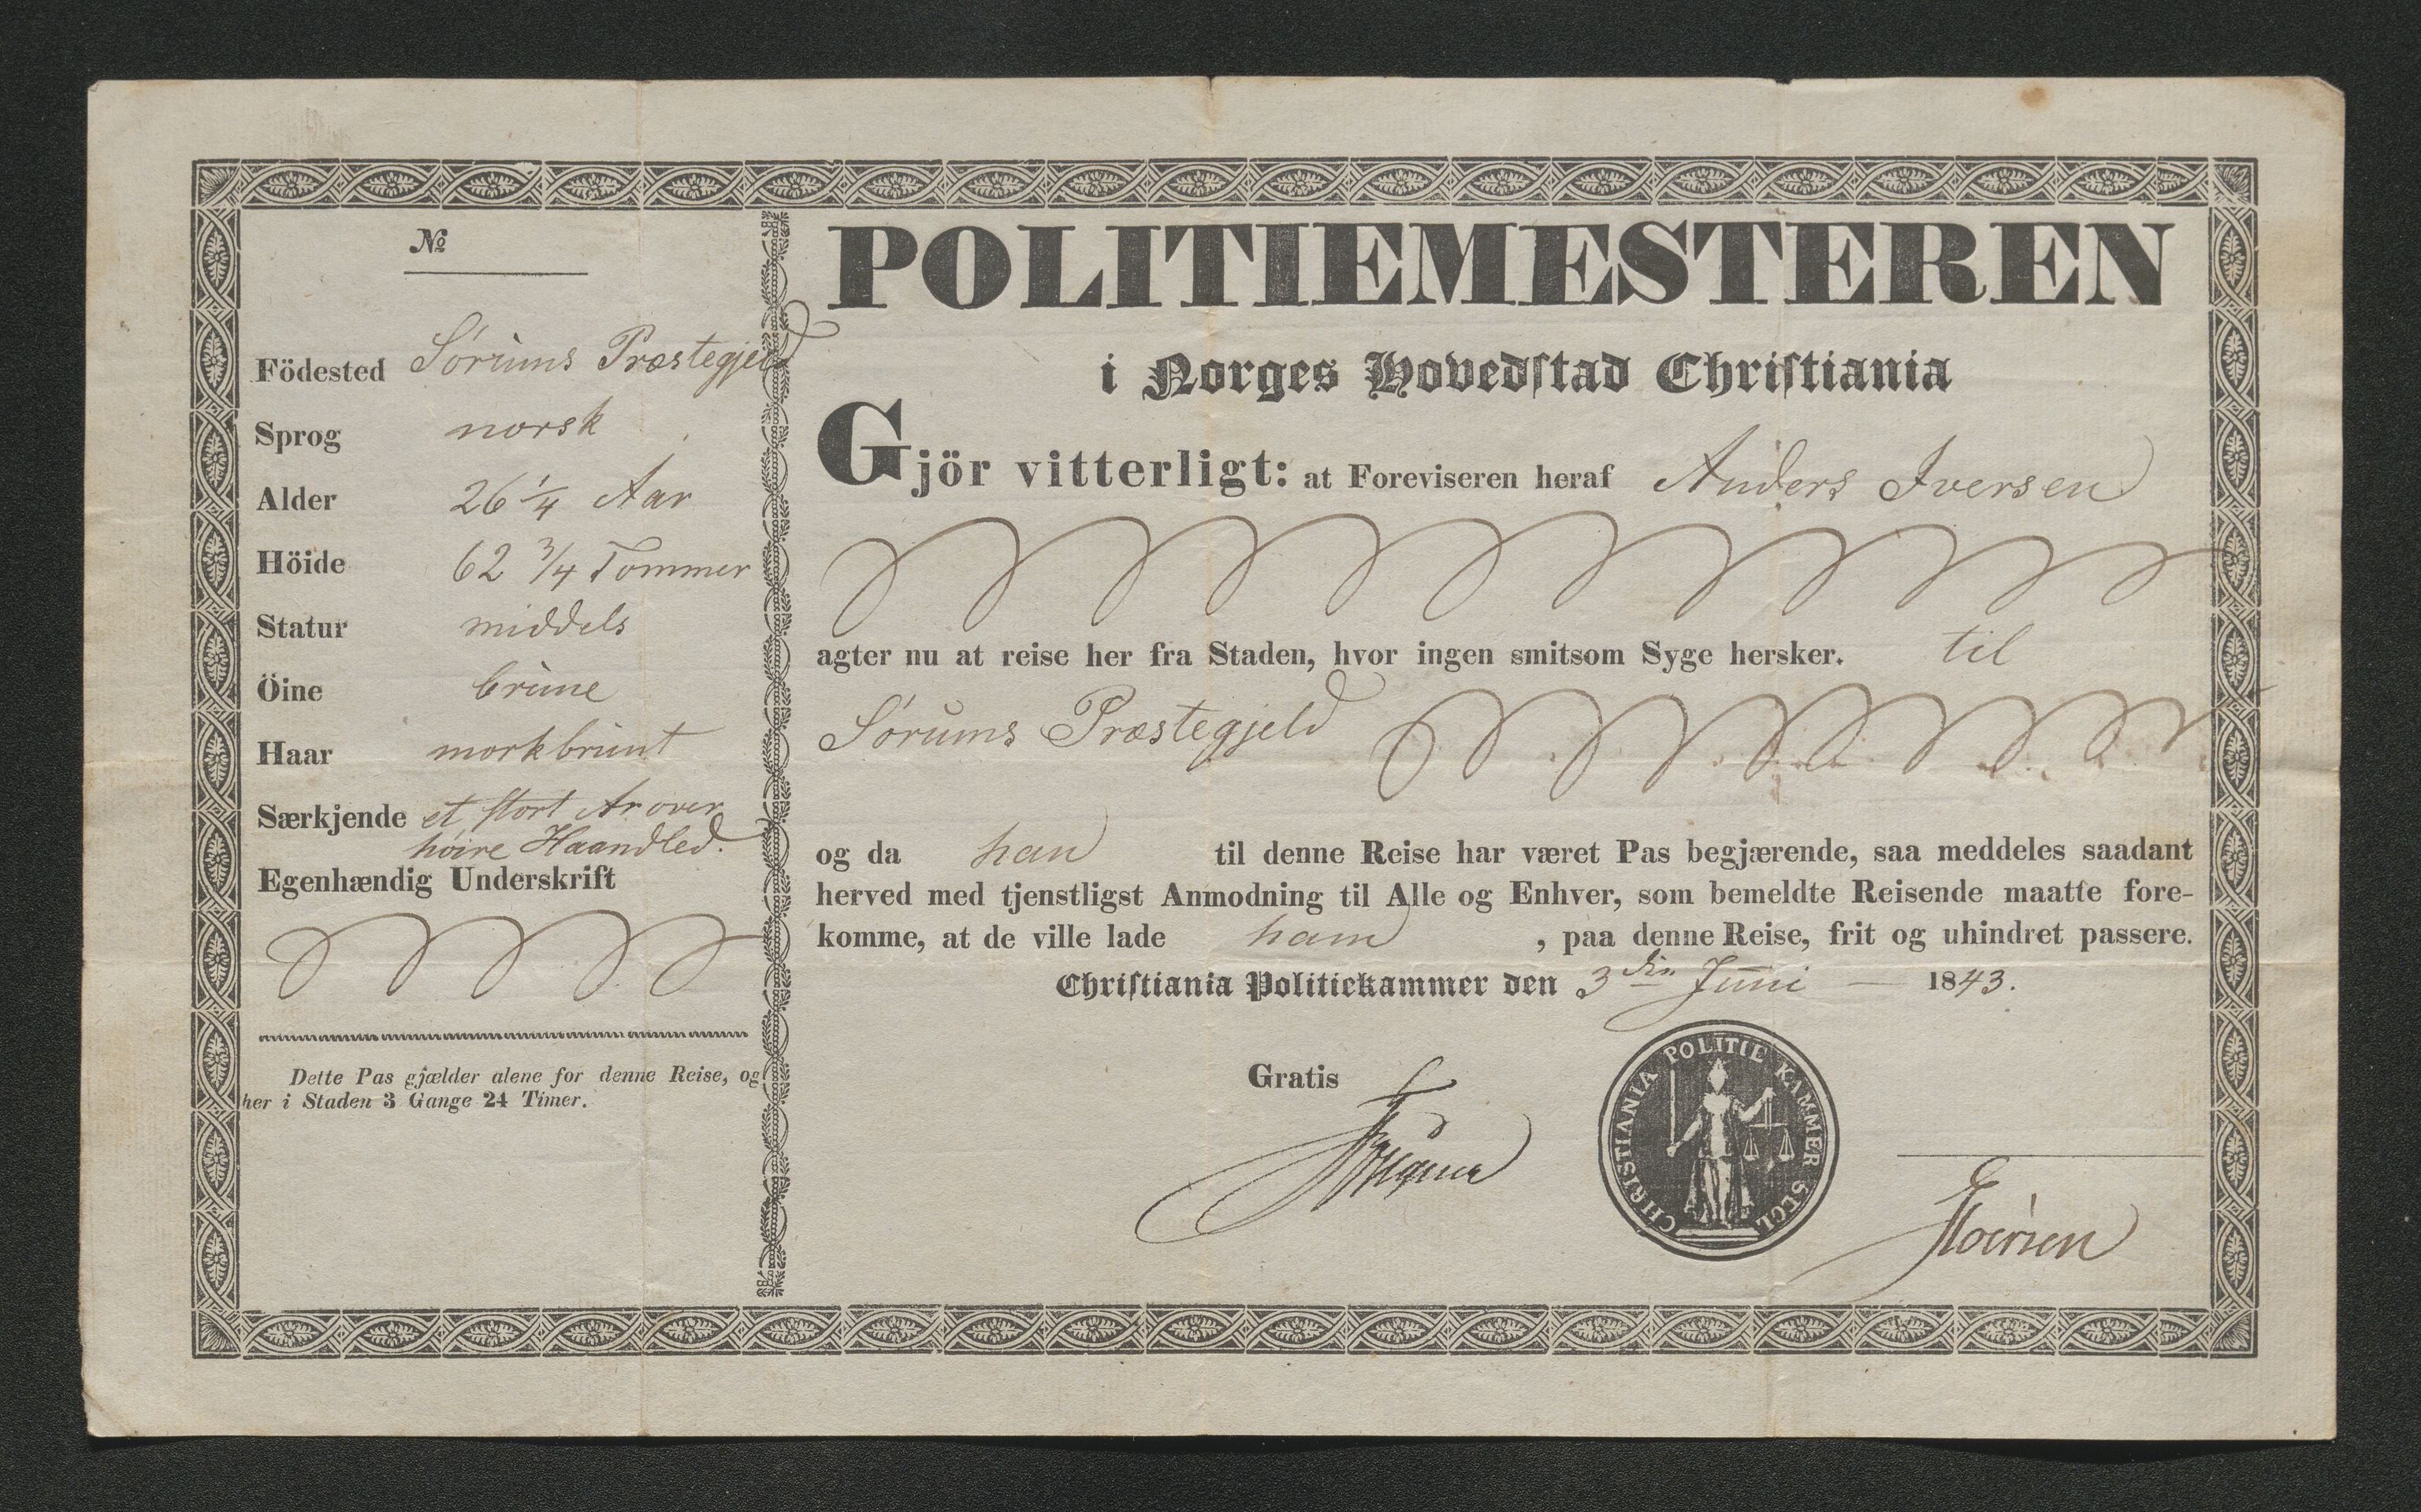 №
Födested Sørums Præstegjeld
Sprog norsk
Alder 26 1/4 Aar
Höide 62 3/4 Tommer
Statur middels
Öine brune
Haar morkbrunt
Særkjende et stort Ar over
høire Haandled.
Egenhændig Underskrift
Dette Pas gjælder alene for denne Reise, og
her i Staden 3 Gange 24 Timer.
POLITIEMESTEREN
i Norges Hovedstad Christiania
Gjör vitterligt: at Foreviseren heraf Anders Iversen
agter nu at reise her fra Staden, hvor ingen smitsom Syge hersker. til
Sørums Præstegjeld
og da han til denne Reise har været Pas begjærende, saa meddeles saadant
herved med tjenstligst Anmodning til Alle og Enhver, som bemeldte Reisende maatte fore-
komme, at de ville lade ham , paa denne Reise, frit og uhindret passere.
Christiania Politiekammer den 3die Juni 1843.
Gratis
CHRISTIANIA POLITIE KAMMER SEGL